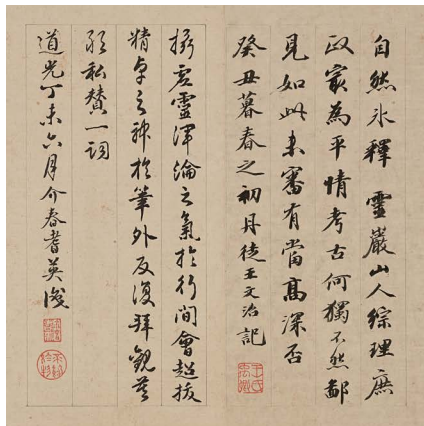 自然冰釋靈巖山人綜理庶
政最為平情考古何獨不然鄙
見如此未審有當高深否
癸丑暮春之初丹徒王文治記
王氏禹卿
虛靈渾淪之氣於行間會超拔
精卓之神於筆外反復拜觀莫
能私贊一詞
道光丁未六月介春耆英識